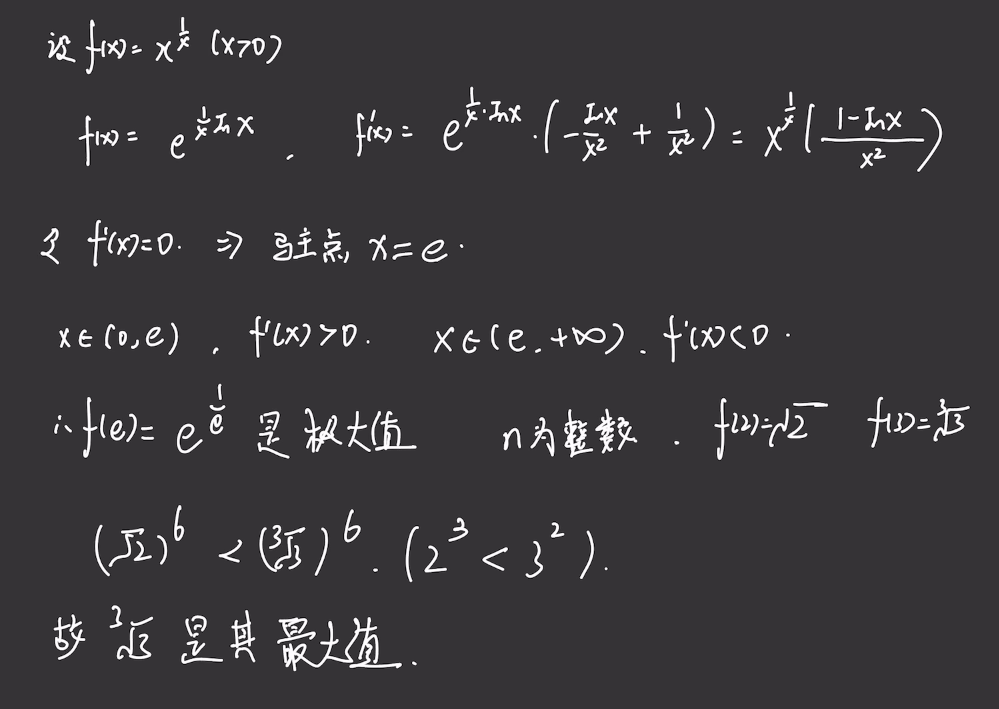 设 f(x) = x^{\frac{1}{x}} (x>0)
f(x) = e^{\frac{1}{x} \ln x} , f'(x) = e^{\frac{1}{x} \cdot \ln x} \cdot (-\frac{\ln x}{x^2} + \frac{1}{x^2}) = x^{\frac{1}{x}} (\frac{1-\ln x}{x^2})
令 f'(x)=0. ⇒ 驻点, x=e.
x∈(0,e) , f'(x)>0. x∈(e,+∞), f'(x)<0.
∴ f(e) = e^{\frac{1}{e}} 是极大值 n为整数 . f(2)=\sqrt{2} f(3)=\sqrt[3]{3}
(\sqrt{2})^6 < (\sqrt[3]{3})^6 . (2^3 < 3^2).
故 \sqrt[3]{3} 是其最大值.